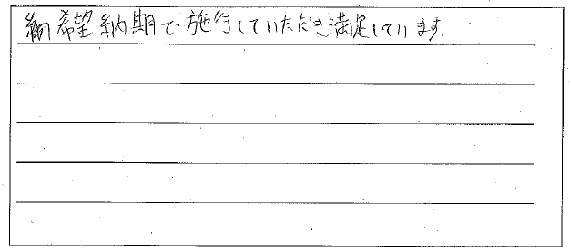 希望納期で施行していただき満足しています。